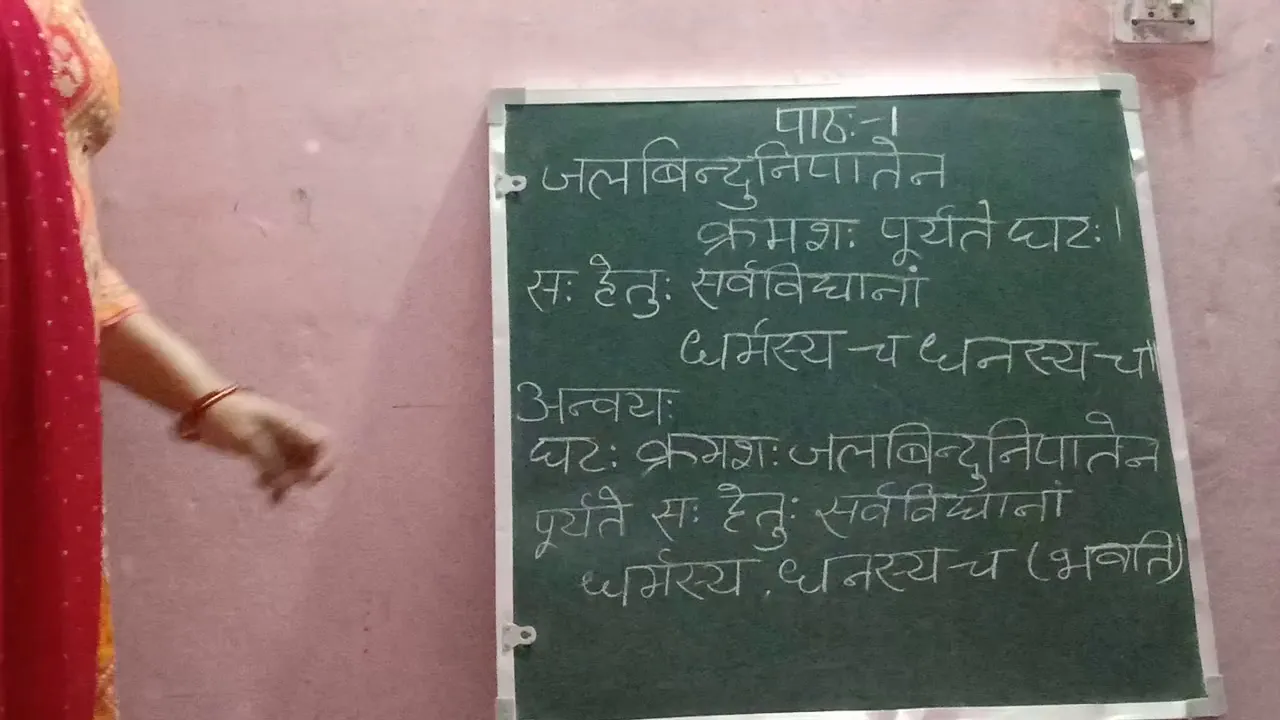 पाठः-१
जलबिन्दुनिपातेन
क्रमशः पूर्यते घटः।
सः हेतुः सर्वविद्यानां
धर्मस्य च धनस्य च॥
अन्वयः
घटः क्रमशः जलबिन्दुनिपातेन
पूर्यते सः हेतुः सर्वविद्यानां
धर्मस्य . धनस्य च (भवति)